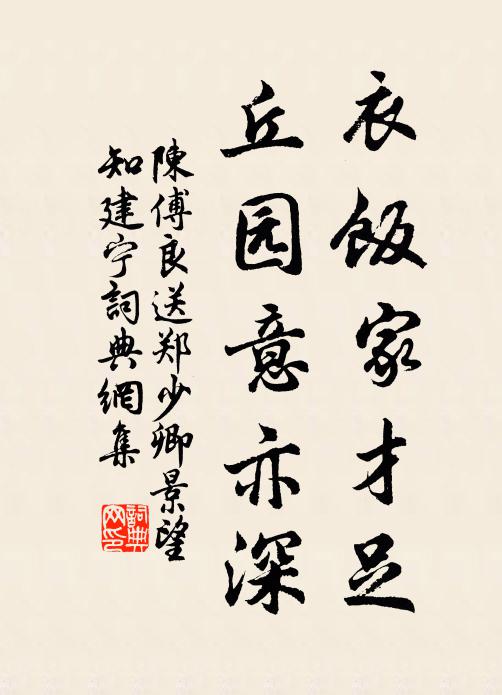 衣飯家才足
丘园意亦深
陳傅良送郑少卿景望
知建宁詞典網集
詞典
网印